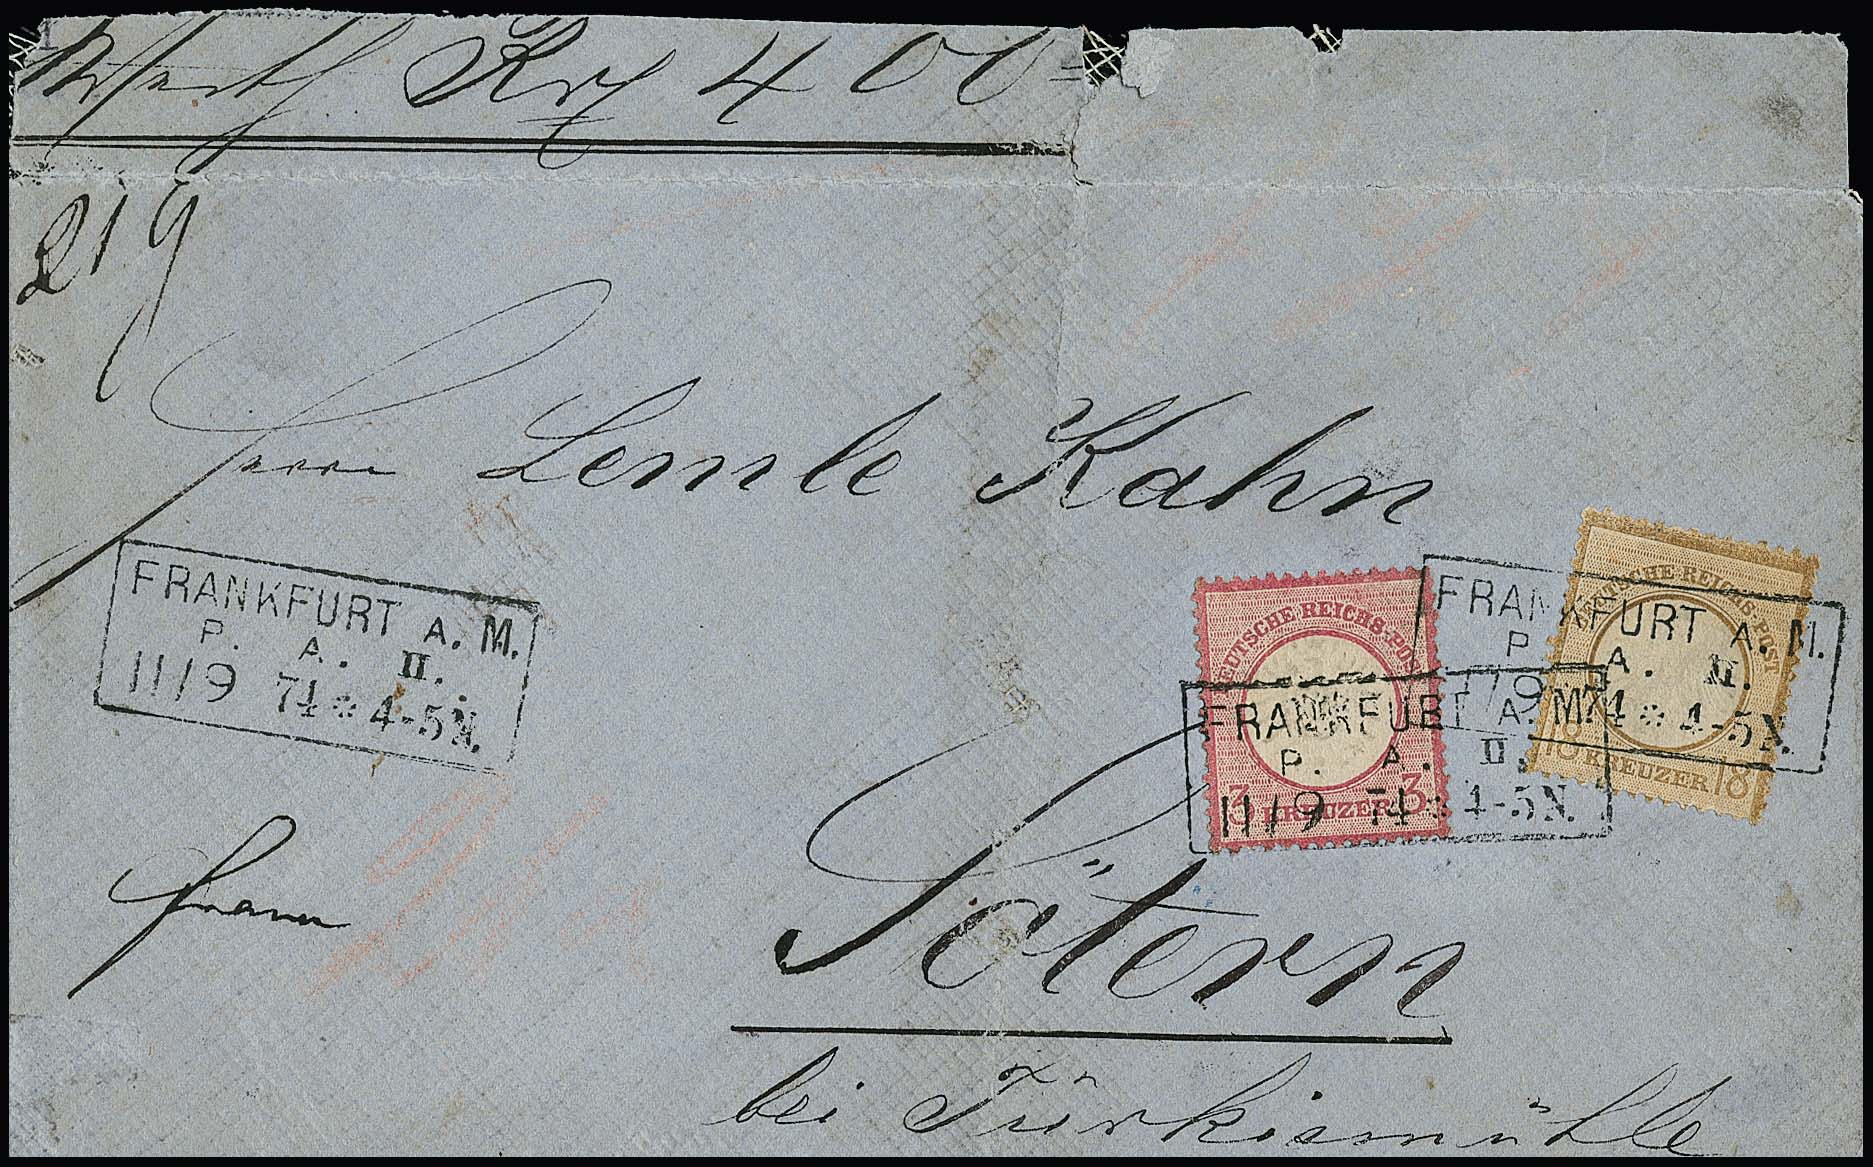 Werth Rth 400=
219
Herrn Lemle Kahn
FRANKFURT A. M.
P. A. II.
11/9 74 * 4-5 N.
DEUTSCHE REICHS-POST
3 KREUZER 3
FRANKFURT A. M.
P. A. II.
11/9 74 * 4-5 N.
DEUTSCHE REICHS-POST
18 KREUZER 18
FRANKFURT A. M.
P. A. II.
11/9 74 * 4-5 N.
franco
Sötern
bei Türkismühle